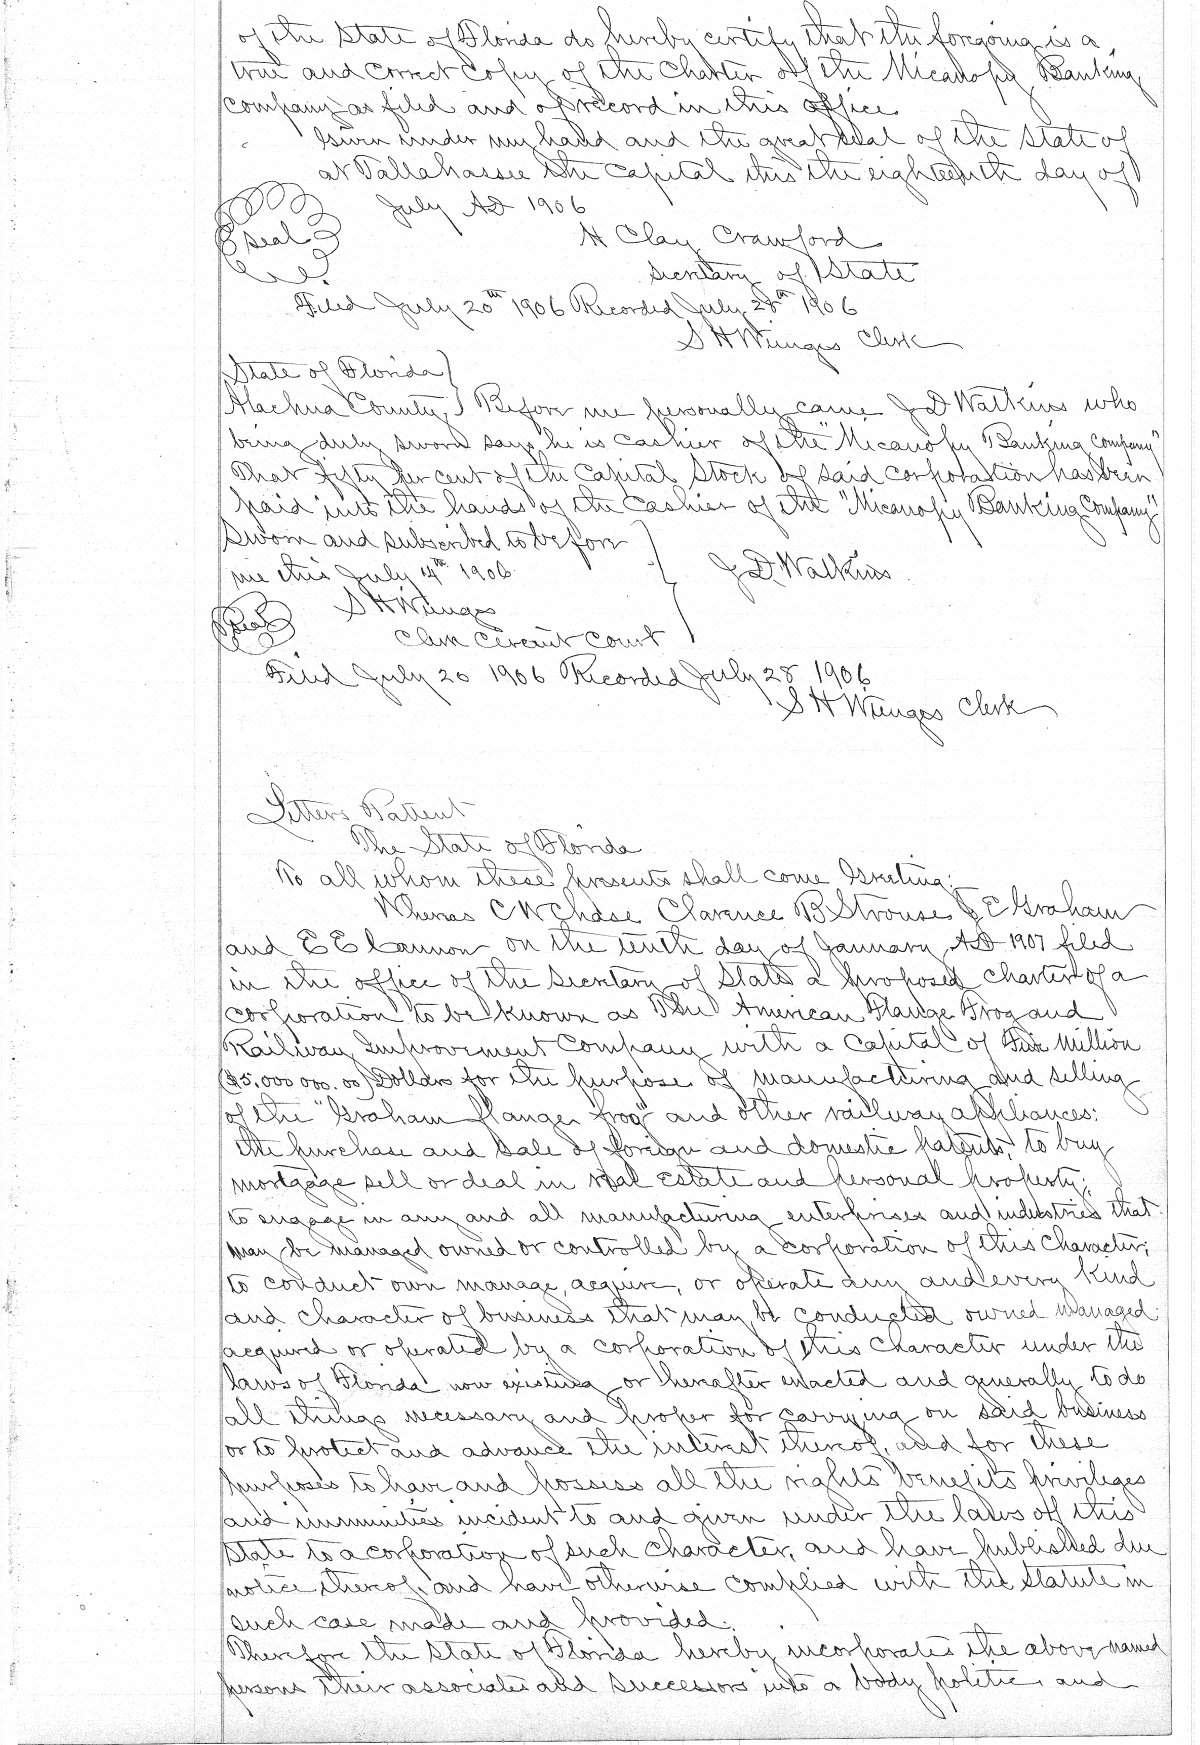 of the State of Florida do hereby certify that the forgoing is a
true and correct copy of the Charter of the Micanopy Banking
Company as filed and of record in this office
Given under my hand and the great seal of the State of
at Tallahassee the Capital this the eighteenth day of
July AD 1906
Seal
H Clay Crawford
Secretary of State
Filed July 20th 1906 Recorded July 28th 1906
S H Wienges Clerk
State of Florida }
Alachua County } Before me personally came J D Watkins who
being duly sworn says he is cashier of the "Micanopy Banking Company"
That fifty per cent of the Capital Stock of said corporation has been
paid into the hands of the Cashier of the "Micanopy Banking Company"
Sworn and subscribed to before
me this July 4th 1906
J D Watkins
S H Wienges
Seal
Clerk Circuit Court
Filed July 20 1906 Recorded July 28 1906
S H Wienges Clerk
Letters Pattent
The State of Florida
To all whom these presents shall come Greeting:
Whereas C W Chase Clarence B Strouse J E Graham
and E E Cannon on the tenth day of January AD 1907 filed
in the office of the Secretary of State a proposed charter of a
corporation to be known as The American Flange Frog and
Railway Improvement Company with a Capital of Five Million
($5,000 000.00) Dollars for the purpose of manufacturing and selling
of the "Graham flange frog" and other railway appliances:
the purchase and sale of foreign and domestic patents, to buy
mortgage sell or deal in real estate and personal property;
to engage in any and all manufacturing enterprises and industries that
may be managed owned or controlled by a corporation of this character;
to conduct own manage, acquire, or operate any and every kind
and character of business that may be conducted owned managed
acquired or operated by a corporation of this character under the
laws of Florida now existing or hereafter enacted and generally to do
all things necessary and proper for carrying on said business
or to protect and advance the interest thereof, and for these
purposes to have and possess all the rights benefits privileges
and immunities incident to and given under the laws of this
State to a corporation of such character, and have published due
notice thereof, and have otherwise complied with the statute in
such case made and provided.
Therefore the State of Florida hereby incorporates the above named
persons their associates and successors into a body politic and